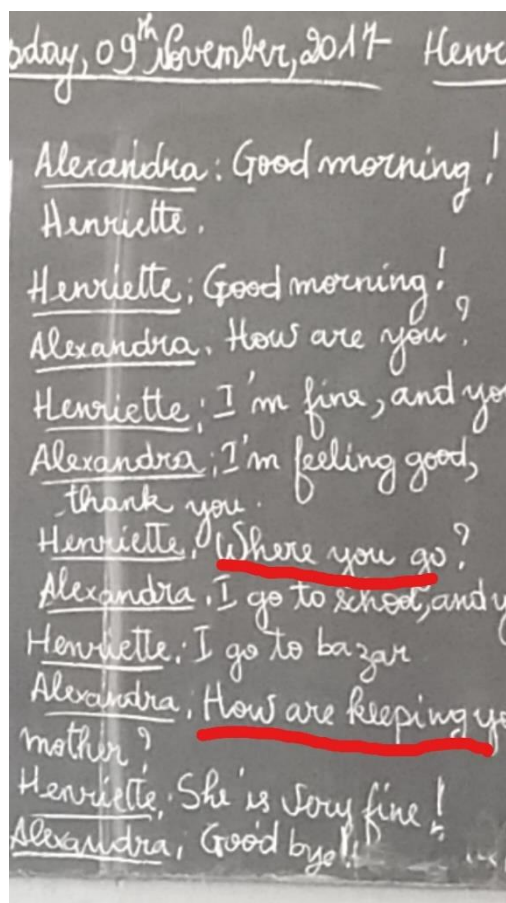 day, 09th November, 2017 Henr
Alexandra: Good morning!
Henriette.
Henriette: Good morning!
Alexandra. How are you?
Henriette: I'm fine, and yo
Alexandra: I'm feeling good,
thank you.
Henriette. Where you go?
Alexandra. I go to school, and y
Henriette: I go to bazar
Alexandra, How are keeping yo
mother?
Henriette. She is very fine!
Alexandra; Good bye!!